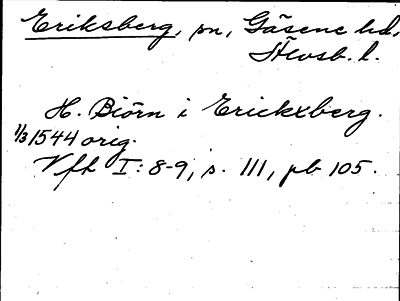 Eriksberg, sn, Gäsene hd,
Älvsb. l.
H. Biörn i Erickxberg.
1/3 1544 orig.
Vfh I: 8-9, s. 111, pb 105.